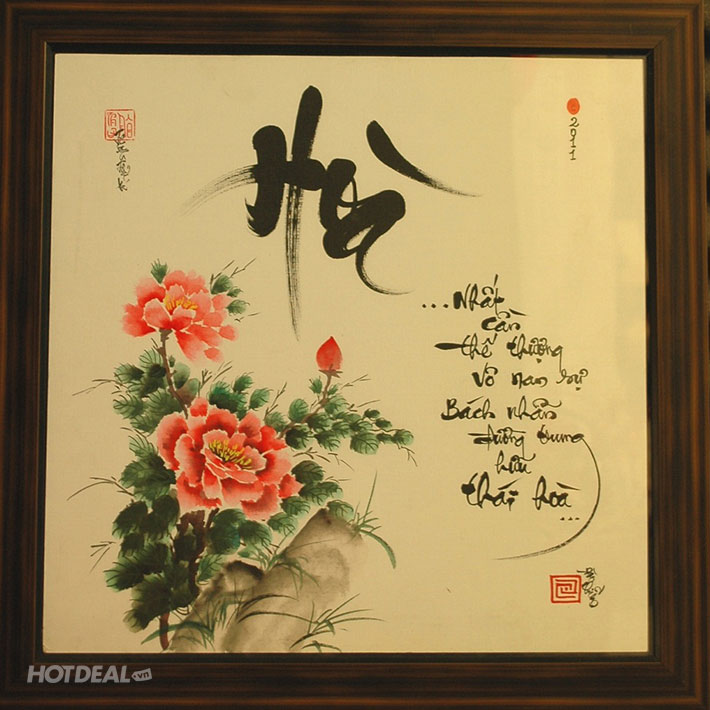 2011
Hoà
...Nhất
cần
thế thượng
vô nan sự
Bách nhẫn
đường trung
hữu
thái hoà
...
HOTDEAL.vn